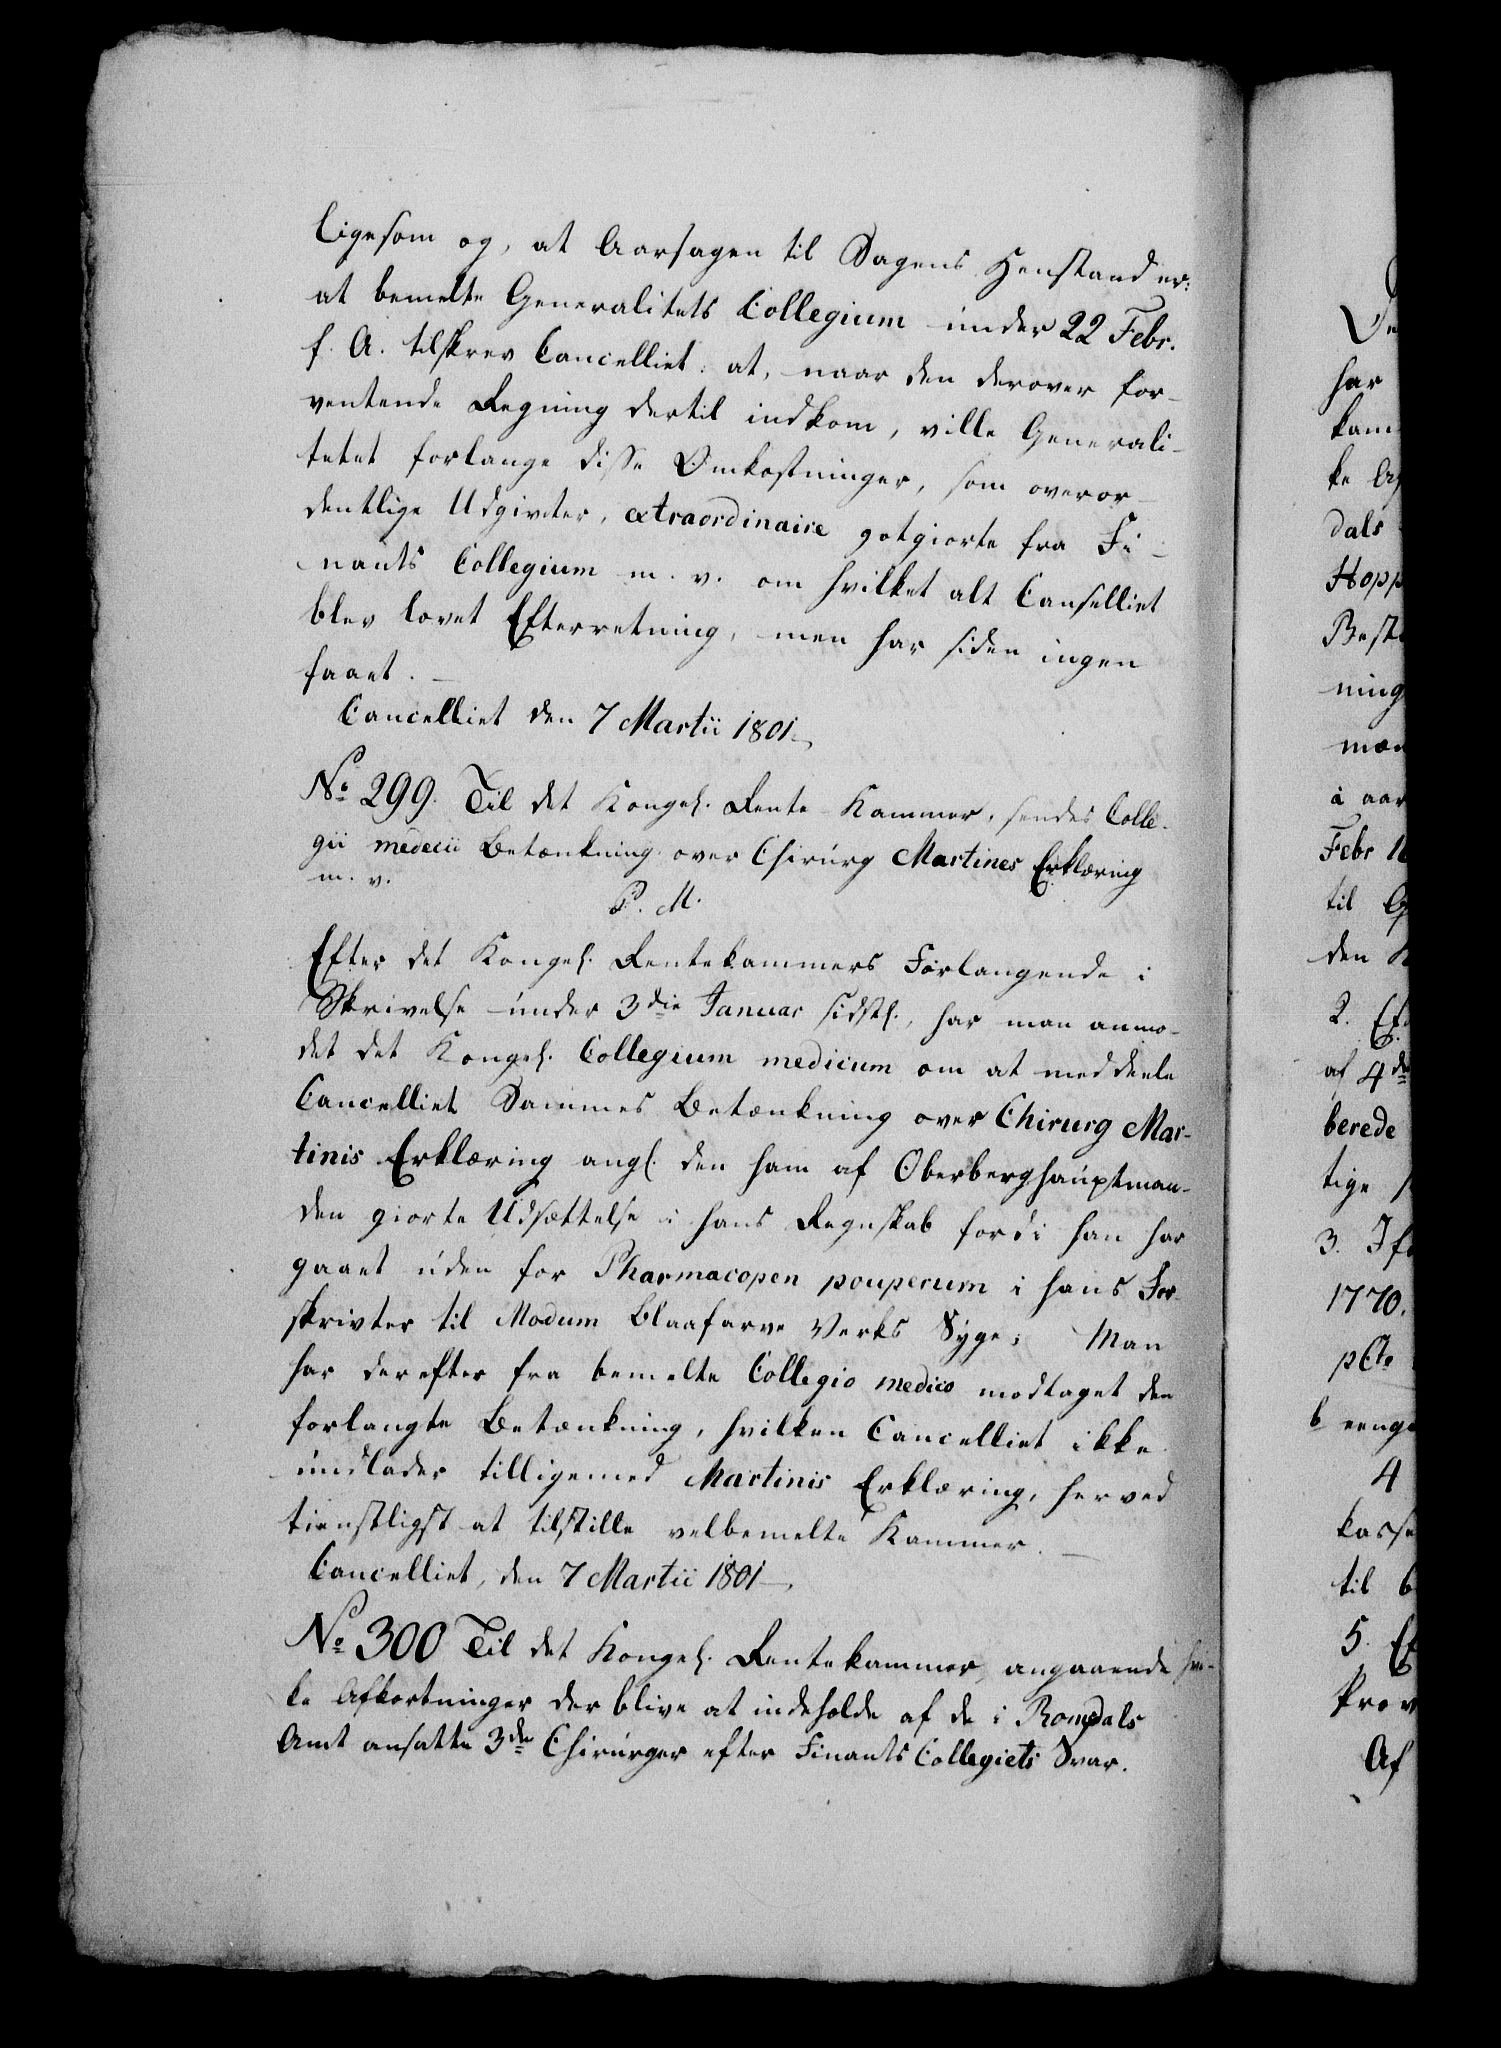 ligesom og, at Aarsagen til Sagens Henstand er:
at bemelte Generalitets Collegium under 22 Febr.
f. A. tilskrev Cancelliet: at, naar den derover for-
ventende Regning dertil indkom, ville Generali-
tetet forlange disse Omkostninger, som overor-
dentlige Udgivter, extraordinaire gotgiorte fra Fi-
nants Collegium m. v. om hvilket alt Canselliet
blev lovet Efterretning, men har siden ingen
faaet. –
Cancelliet den 7 Martii 1801.
No 299. Til det Kongel. Rente-Kammer, sendes Colle-
gii medecii Betænkning over Chirurg Martines Erklæring
m. v.
P. M.
Efter det Kongel. Rentekammers Forlangende i
Skrivelse under 3die Januar sidstl., har man anmo-
det det Kongel. Collegium medicum om at meddeele
Cancelliet Sammes Betænkning over Chirurg Mar-
tinis Erklæring angl. den ham af Oberberghauptman-
den giorte Udsættelse i hans Regnskab fordi han har
gaaet uden for Pharmacopen pouperum i hans For-
skrivter til Modum Blaafarve Verks Syge; Man
har derefter fra bemelte Collegio medico modtaget den
forlangte Betænkning, hvilken Cancelliet ikke
undlader tilligemed Martinis Erklæring, herved
tienstligst at tilstille velbemelte Kammer. –
Cancelliet, den 7 Martii 1801 –
No 300 Til det Kongel. Rentekammer, angaaende hvil-
ke Afkortninger der blive at indeholde af de i Romsdals
Amt ansatte 3de Chirurger efter Finants Collegiets Svar.
har
kam
ke
dals
Hopp
Beste
ning
mæn
a aar
Febr
til
den
2. Ef
af 4de
berede
tige
3. If
1770.
pCto
b eenge
4
kasse
til
5. Ef
Prov
Af